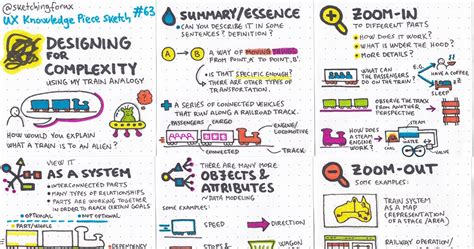 @sketchingforux
UX Knowledge Piece Sketch #63
DESIGNING
FOR
COMPLEXITY
USING MY TRAIN ANALOGY
HOW WOULD YOU EXPLAIN
WHAT A TRAIN IS TO AN ALIEN?
SUMMARY/ESSENCE
CAN YOU DESCRIBE IT IN SOME
SENTENCES? DEFINITION?
A → B
A WAY OF MOVING THINGS
FROM POINT 'A' TO POINT 'B'.
IS THAT SPECIFIC ENOUGH?
THERE ARE OTHER TYPES OF
TRANSPORTATION.
+ A SERIES OF CONNECTED VEHICLES
THAT RUN ALONG A RAILROAD TRACK.
PASSENGERS/CARGO
ENGINE/
LOCOMOTIVE
CONNECTED
TRACK
ZOOM-IN
TO DIFFERENT PARTS
• HOW DOES IT WORK?
• WHAT IS UNDER THE HOOD?
• MORE DETAILS?
WHAT CAN
THE PASSENGERS
DO ON THE TRAIN?
HAVE A COFFEE
SLEEP
OBSERVE THE TRACK
FROM ANOTHER
PERSPECTIVE
HOW DOES A
STEAM
ENGINE
WORK?
STEAM
VIEW IT
AS A SYSTEM
• INTERCONNECTED PARTS
• MANY TYPES OF RELATIONSHIPS
• PARTS ARE WORKING TOGETHER
IN ORDER TO REACH CERTAIN GOALS
OPTIONAL
NOT OPTIONAL
PARTS/WHOLE
DEPENDENCY
THERE ARE MANY MORE
OBJECTS &
ATTRIBUTES
~ DATA MODELING
SPEED
DIRECTION
STATION
WAGON
ZOOM-OUT
SOME EXAMPLES:
TRAIN SYSTEM
AS A MAP
(REPRESENTATION
OF A SPACE / AREA)
RAILWAY